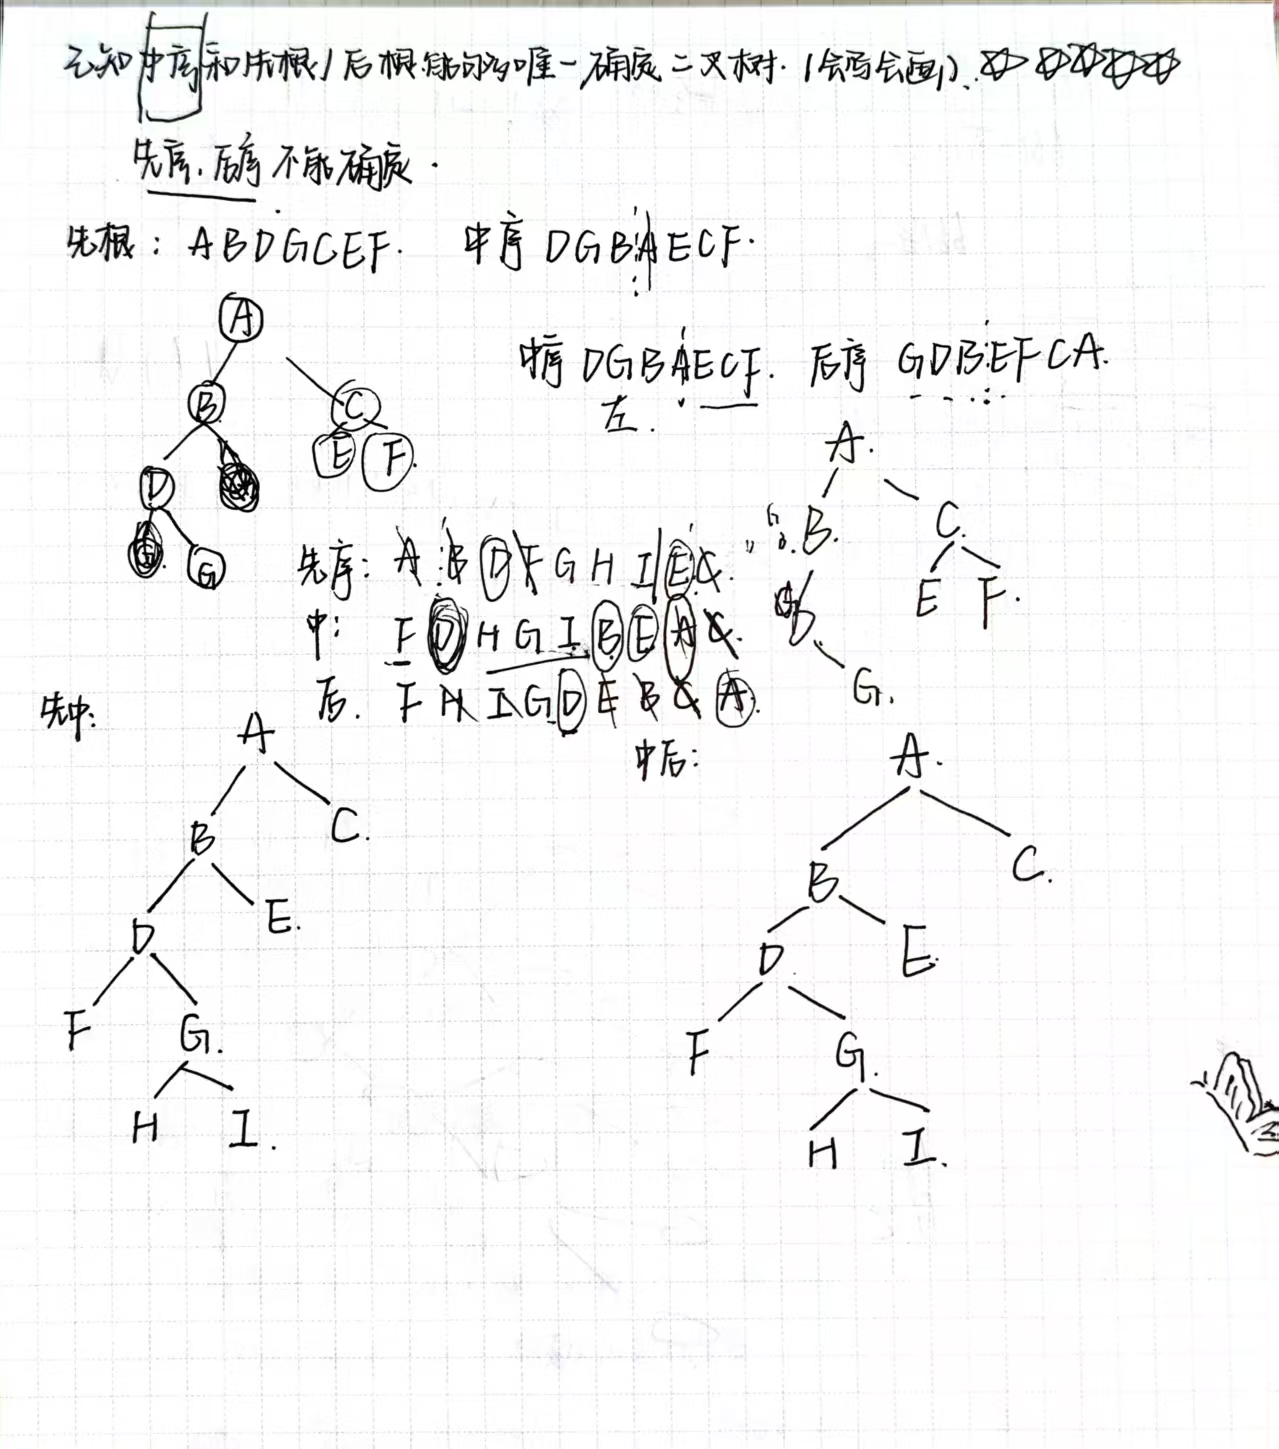 已知中序和先根/后根能够唯一确定二叉树.(会写会画).
先序,后序不能确定.
先根: ABDGCEF. 中序 DGBAECF.
A
B C
E F
D
G
中序 DGBAECF. 后序 GDBEFCA.
左.
A.
B. C.
E F.
D
G.
先序: A B D F G H I E C.
中: F D H G I B E A C.
后. F H I G D E B C A.
先中:
A
B C.
D E.
F G.
H I.
中后:
A.
B C.
D. E.
F G.
H I.